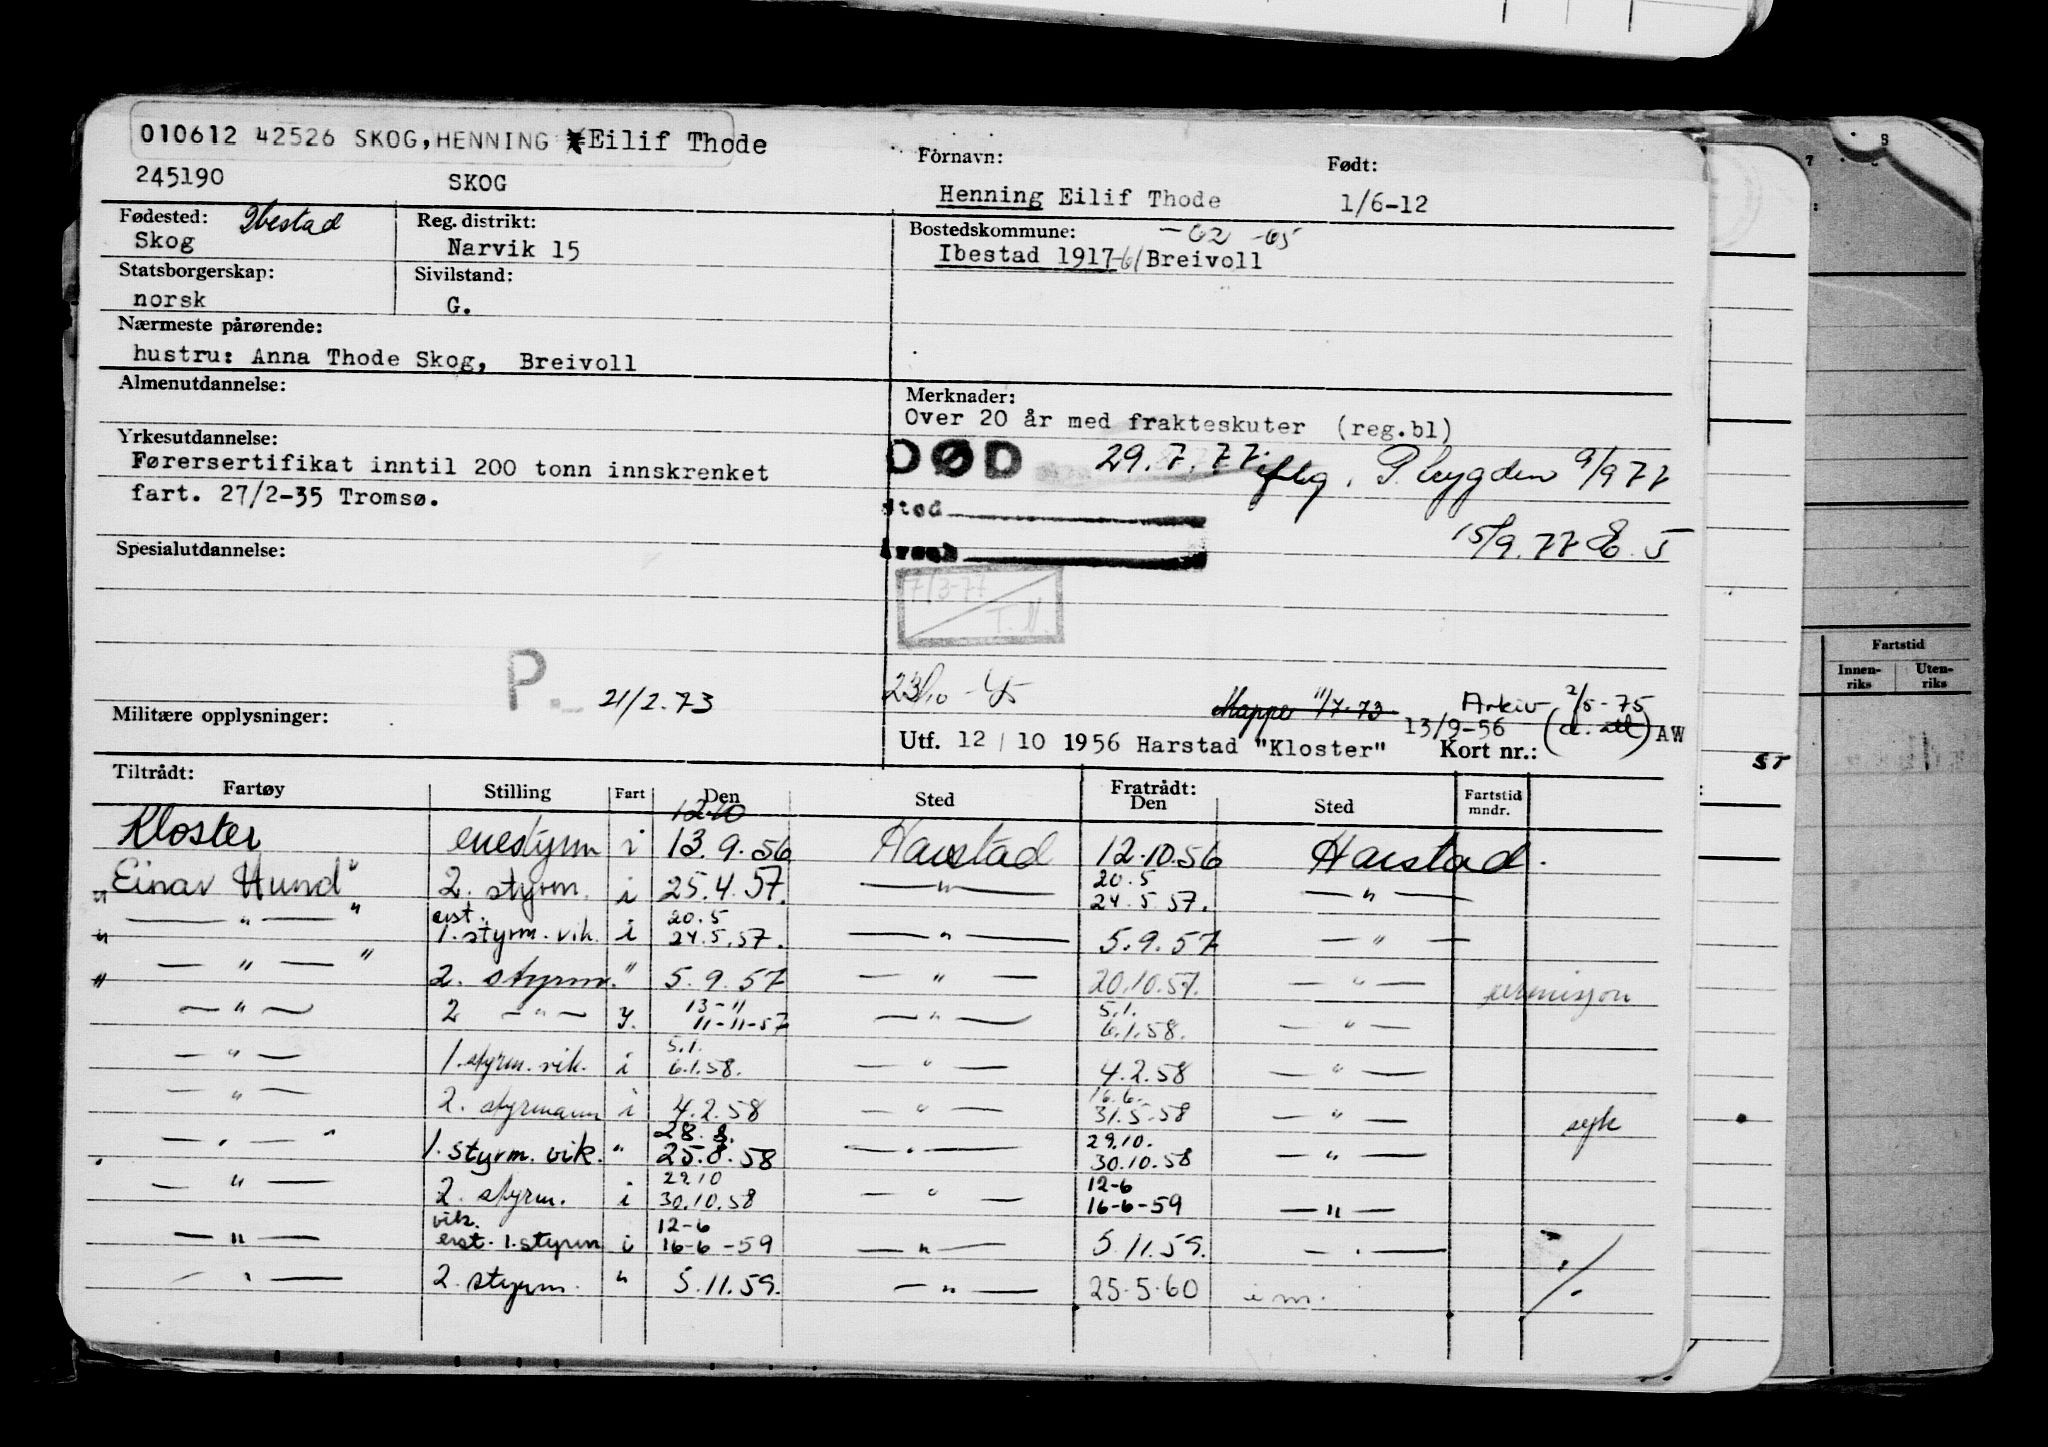 010612 42526 SKOG, HENNING Eilif Thode
245190 SKOG
Fornavn: Født:
Henning Eilif Thode 1/6-12
Fødested: Ibestad
Skog
Reg. distrikt:
Narvik 15
Bostedskommune: -62 -65
Ibestad 1917-61/Breivoll
Statsborgerskap:
norsk
Sivilstand:
G.
Nærmeste pårørende:
hustru: Anna Thode Skog, Breivoll
Almenutdannelse:
Merknader:
Over 20 år med frakteskuter (reg.bl)
Yrkesutdannelse:
Førersertifikat inntil 200 tonn innskrenket
fart. 27/2-35 Tromsø.
DØD 29.7.77. iflg. P. trygden 9/9 77
Sted
Årsak
15/9.77 E. J
Spesialutdannelse:
7/3-77
T.N.
P. 21/2.73
23/10-45
Mappe 11/7-73 Arkiv 2/5-75
13/9-56 (d. atl) AW
Militære opplysninger:
Utf. 12/10 1956 Harstad "Kloster" Kort nr.:
Tiltrådt: Fratrådt:
Fartøy Stilling Fart Den Sted Den Sted Fartstid mndr.
12.10
Kloster enestyrm i 13.9.56 Harstad 12.10.56 Harstad.
20.5
"Einar Hund" 2. styrm. i 25.4.57. — " — 24.5 57. — " —
erst. 20.5
" — " — " 1. styrm. vik. i 24.5.57. — " — 5.9.57 — " —
" — " — " 2. styrm. " 5.9.57 — " — 20.10.57. — " — permisjon
13-11 5.1.
— " — 2 — " — y. 11-11-57 — " — 6.1.58. — " —
5.1.
— " — 1. styrm. vik. i 6.1.58. — " — 4.2.58 — " —
16.6.
— " — 2. styrmann i 4.2.58 — " — 31.5.58 — " — syk
28.8. 29.10.
— " — " 1. styrm. vik. " 25.8.58 — " — 30.10.58 — " —
29.10 12-6
— " — 2. styrm. i 30.10.58 — " — 16-6-59 — " —
vik. 12-6
— " — erst. 1. styrm i 16-6-59 — " — 5.11.59. — " —
— " — 2. styrm. " 5.11.59. — " — 25.5.60 i m. ./.
Fartstid
Innen-riks Uten-riks
ST